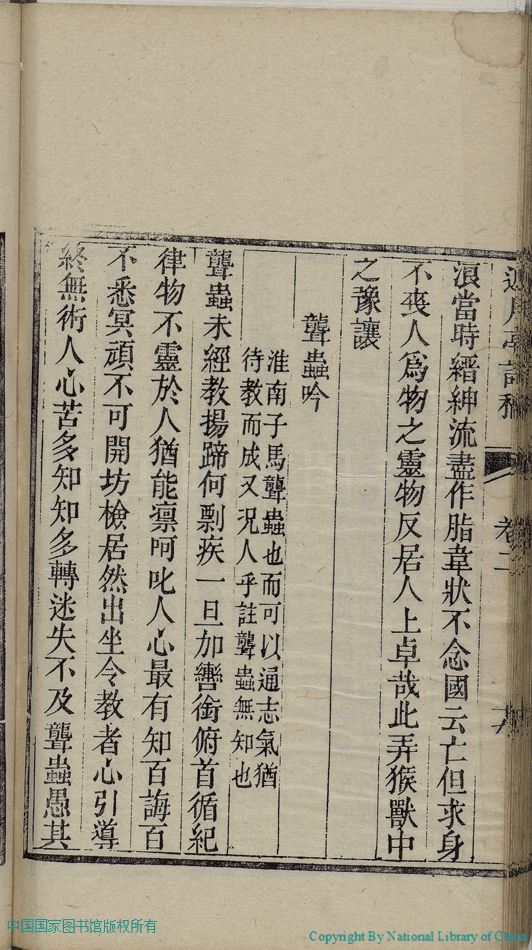 浪當時縉紳流盡作脂韋狀不念國云亡但求身
不喪人爲物之靈物反居人上卓哉此弄猴獸中
之豫讓
聾蟲吟
淮南子馬聾蟲也而可以通志氣猶
待教而成又況人乎註聾蟲無知也
聾蟲未經教揚蹄何剽疾一旦加轡銜俯首循紀
律物不靈於人猶能禀呵叱人心最有知百誨百
不悉冥頑不可開坊檢居然出坐令教者心引導
終無術人心苦多知知多轉迷失不及聾蟲愚其
卷二
中国国家图书馆版权所有
Copyright By National Library of China